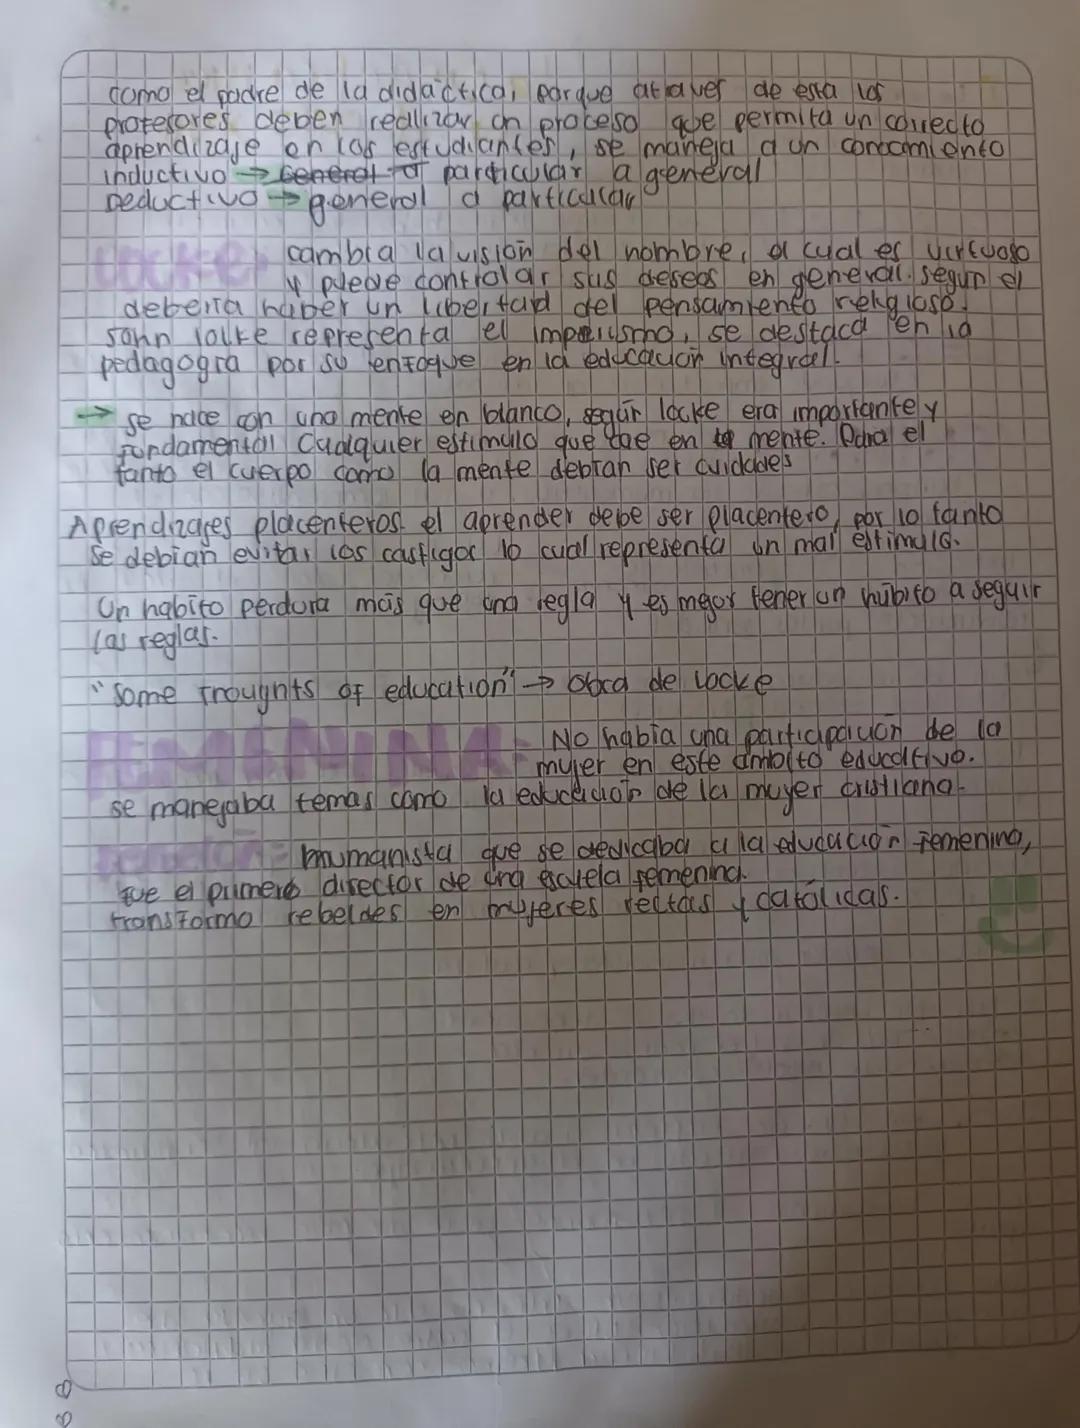 como el padre de la didáctica, porque atraves de esta los
profesores deben realizar un proceso que permita un correcto
aprendizaje en los estudiantes, se maneja a un conocimiento
inductivo → general a particular a general
Deductivo → general a particular
LOCKE: cambia la visión del hombre, el cual es virtuoso
y puede controlar sus deseos en general. según el
debería haber un libertad del pensamiento religioso.
John Locke representa el impericismo, se destaca en la
pedagogía por su enfoque en la educación integral.
→ se nace con una mente en blanco, según locke era importante y
fundamental Cualquier estimulo que cae en la mente. Para el
tanto el cuerpo como la mente debían ser cuidades
Aprendizajes placenteros. el aprender debe ser placentero, por lo tanto
se debian evitar los castigos lo cual representa un mal estimulo.
Un habito perdura más que una regla y es mejor tener un hábito a seguir
las reglas.
"some Thoughts of education" → obra de Locke
FEMENINA: No había una participación de la
mujer en este ámbito educativo.
se manejaba temas como la educación de la mujer cristiana.
humanista que se dedicaba a la educación femenina,
fue el primero director de una escuela femenina.
transformo rebeldes en mujeres rectas y católicas.